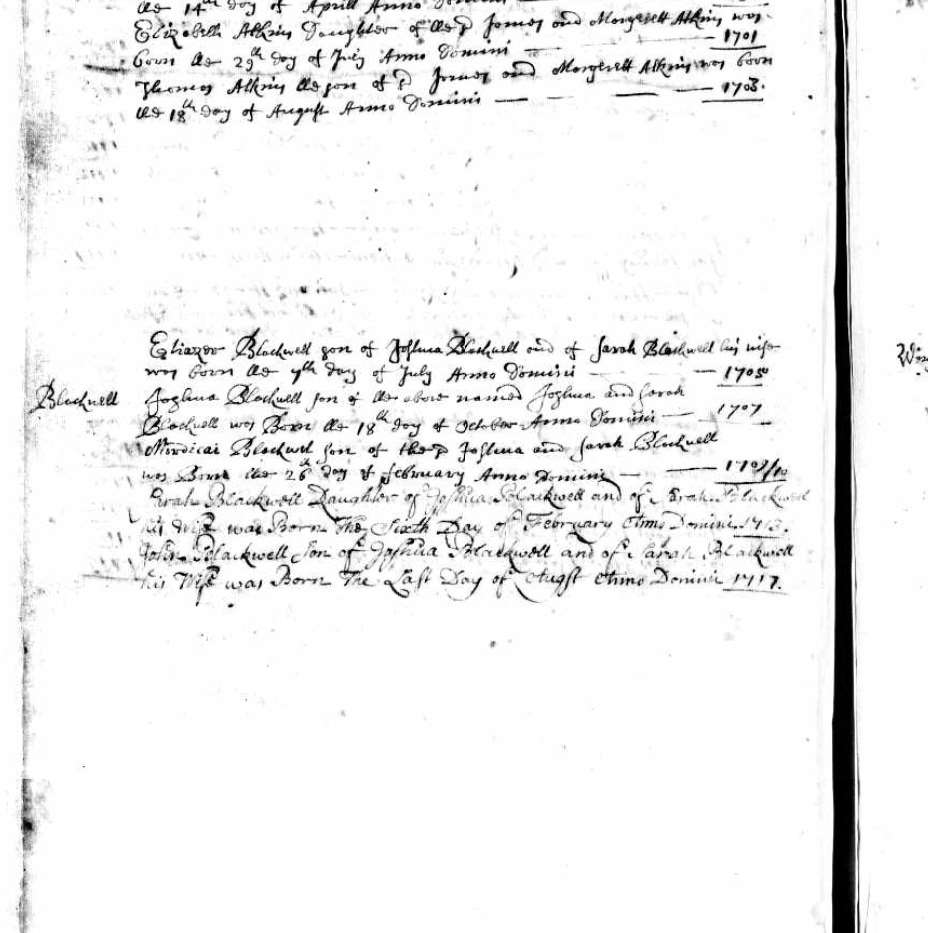 the 14th day of Aprill Anno Domini
Elizabeth Atkins Daughter of the sd James and Margerett Atkins was
born the 29th day of July Anno Domini — 1701
Thomas Atkins the son of sd James and Margerett Atkins was born
the 18th day of August Anno Domini — — — 1703.
Eliazer Blackwell son of Joshua Blackwell and of Sarah Blackwell his wife
was born the 7th day of July Anno Domini — — 1705
Blackwell
Joshua Blackwell son of the above named Joshua and Sarah
Blackwell was Born the 18th day of October Anno Domini — 1707
Mordicai Blackwel son of the sd Joshua and Sarah Blackwell
was Born the 26th day of february Anno Domini — — 1709/10
Sarah Blackwell Daughter of Joshua Blackwell and of Sarah Blackwell
his Wife was Born The Sixth Day of February Anno Domini 1713.
John Blackwell Son of Joshua Blackwell and of Sarah Blackwell
his Wife was Born The Last Day of Augst Anno Domini 1717.